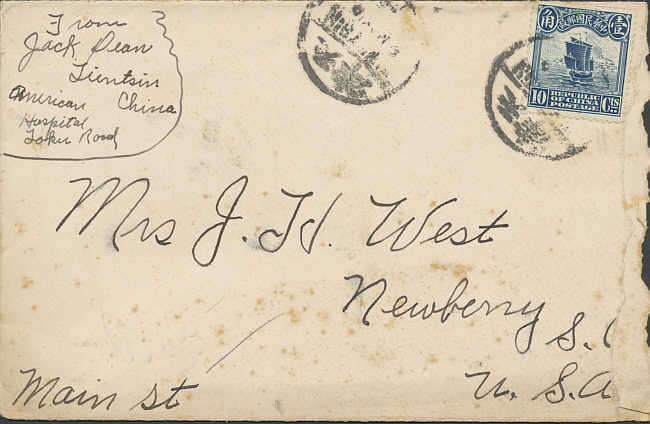 From
Jack Dean
Tientsin
American China
Hospital
Taku Road
角 政郵國民華中 壹
10 REPUBLIC Cts
OF CHINA
POSTAGE
Mrs J. H. West
Newberry
S.C
U. S. A
Main st